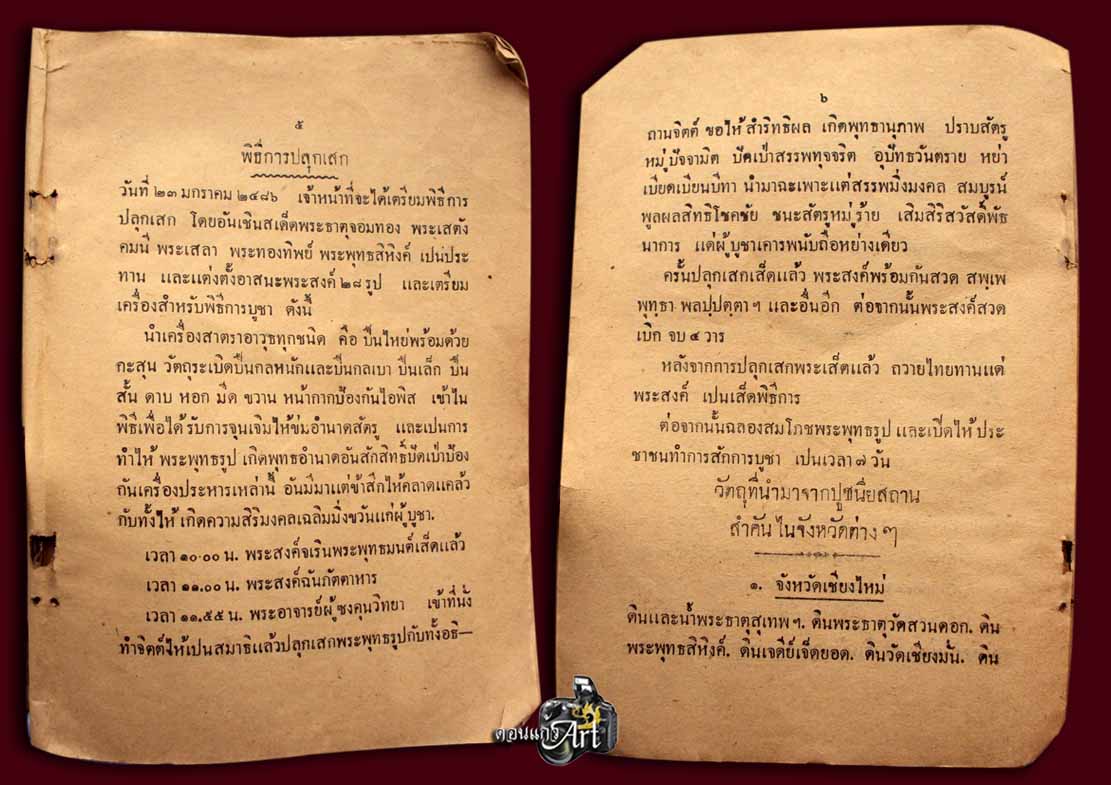 ๕
พิธีการปลุกเสก
วันที่ ๒๓ มกราคม ๒๔๘๖ เจ้าหน้าที่จะได้เตรียมพิธีการ
ปลุกเสก โดยอันเชินสเด็ดพระธาตุจอมทอง พระเสตัง
คมนี พระเสลา พระทองทิพย์ พระพุทธสิหิงค์ เปนประ
ทาน และแต่งตั้งอาสนะพระสงค์ ๒๘ รูป และเตรียม
เครื่องสำหรับพิธีการบูชา ดังนี้
นำเครื่องสาตราอาวุธทุกชนิด คือ ปืนไหย่พร้อมด้วย
กะสุน วัตถุระเบิดปืนกลหนักและปืนกลเบา ปืนเล็ก ปืน
สั้น ดาบ หอก มีด ขวาน หน้ากากป้องกันไอพิส เข้าใน
พิธีเพื่อได้รับการจุนเจิมให้ข่มอำนาดสัตรู และเปนการ
ทำให้ พระพุทธรูป เกิดพุทธอำนาดอันสักสิทธิ์ปัดเป่าป้อง
กันเครื่องประหารเหล่านี้ อันมีมาแต่ข้าสึกไห้คลาดแคล้ว
กับทั้งไห้ เกิดความสิริมงคลเฉลิมมิ่งขวันแก่ผู้บูชา.
เวลา ๑๐.๐๐ น. พระสงค์จเรินพระพุทธมนต์เส็ดแล้ว
เวลา ๑๑.๐๐ น. พระสงค์ฉันภัตตาหาร
เวลา ๑๑.๕๕ น. พระอาจารย์ผู้ซงคุนวิทยา เข้าที่นั่ง
ทำจิตต์ไห้เปนสมาธิแล้วปลุกเสกพระพุทธรูปกับทั้งอธิ—
๖
ถานจิตต์ ขอไห้สำริทธิผล เกิดพุทธานุภาพ ปราบสัตรู
หมู่ปัจจามิต ปัดเป่าสรรพทุจจริต อุปัทธวันตราย หย่า
เบียดเบียนบีทา นำมาฉะเพาะแต่สรรพมิ่งมงคล สมบูรน์
พูลผลสิทธิโชคชัย ชนะสัตรูหมู่ร้าย เสิมสิริสวัสดิ์พัธ
นาการ แด่ผู้บูชาเคารพนับถือหย่างเดียว
ครั้นปลุกเสกเส็ดแล้ว พระสงค์พร้อมกันสวด สพฺเพ
พุทฺธา พลปฺปตฺตา ฯ และอื่นอีก ต่อจากนั้นพระสงค์สวด
เบิก จบ ๔ วาร
หลังจากการปลุกเสกพระเส็ดแล้ว ถวายไทยทานแด่
พระสงค์ เปนเส็ดพิธีการ
ต่อจากนั้นฉลองสมโภชพระพุทธรูป และเปิดไห้ประ
ชาชนทำการสักการบูชา เปนเวลา ๗ วัน
วัตถุที่นำมาจากปูชนียสถาน
สำคันในจังหวัดต่าง ๆ
๑. จังหวัดเชียงใหม่
ดินและน้ำพระธาตุสุเทพ ฯ. ดินพระธาตุวัดสวนดอก. ดิน
พระพุทธสิหิงค์. ดินเจดีย์เจ็ดยอด. ดินวัดเชียงมั่น. ดิน
ดอนแก้ว Art